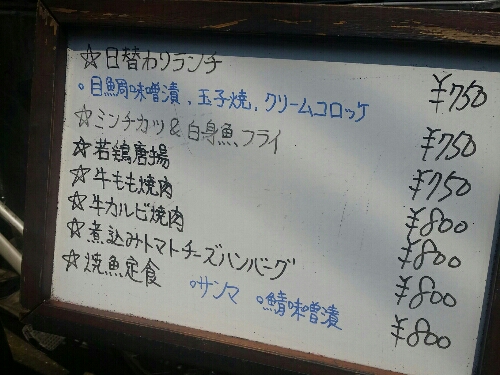 ☆日替わりランチ ¥750
。目鯛味噌漬、玉子焼、クリームコロッケ
☆ミンチカツ&白身魚フライ ¥750
☆若鶏唐揚 ¥750
☆牛もも焼肉 ¥800
☆牛カルビ焼肉 ¥800
☆煮込みトマトチーズハンバーグ ¥800
☆焼魚定食 ¥800
。サンマ 。鯖味噌漬